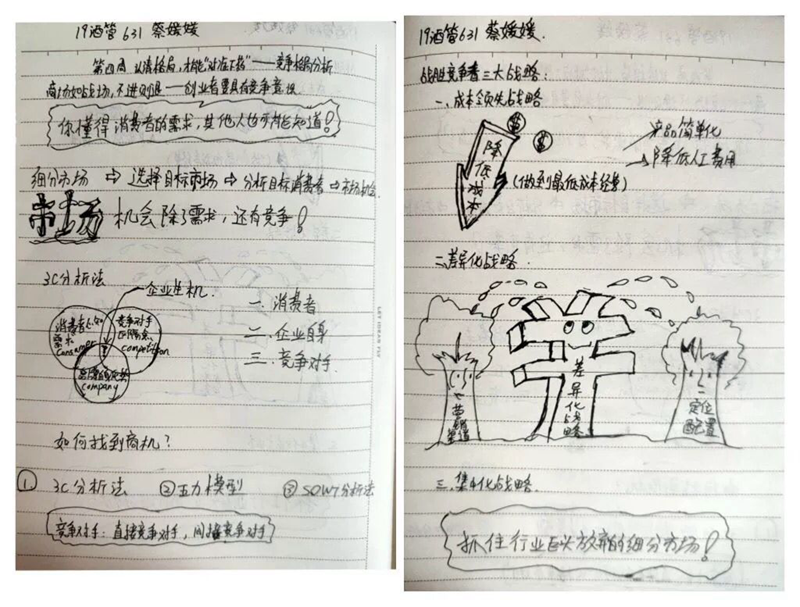 19酒管631 蔡媛媛
第四周 认清格局,才能"对准下药"——竞争格局分析
商场如战场,不进则退——创业者要具有竞争意识
你懂得消费者的需求,其他人也可能知道!
细分市场 ⇨ 选择目标市场 ⇨ 分析目标消费者 ⇨ 市场机会
市场 机会除了需求,还有竞争!
3C分析法
企业生机
一、消费者
二、企业自身
三、竞争对手
消费者
需求
Consumer
竞争对手
competition
company
如何找到商机?
① 3C分析法 ②五力模型 ③SOWT分析法
竞争对手:直接竞争对手,间接竞争对手
19酒管631 蔡媛媛.
战胜竞争者三大战略:
一、成本领先战略
$ $
降低成本
产品简单化
降低人工费用
(做到最低成本经营)
二、差异化战略.
差异化战略
定位
配置
三、集中化战略.
抓住行业巨头放弃的细分市场!